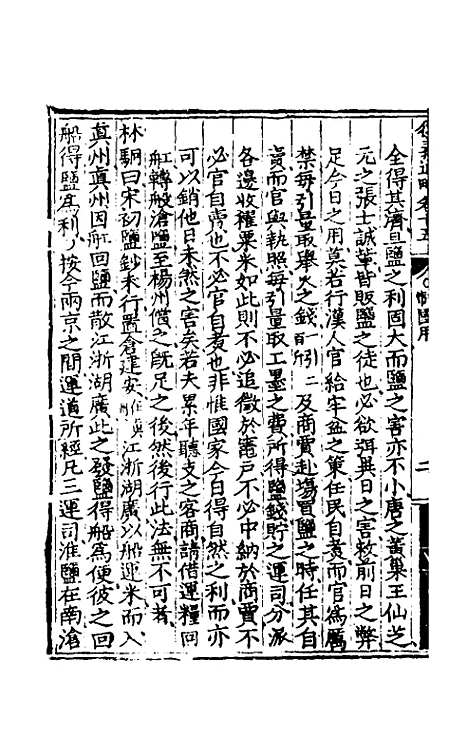 全得其濟且鹽之利固大而鹽之害亦不小唐之黃巢王仙芝
元之張士誠輩皆販鹽之徒也必欲弭異日之害救前日之弊
足今日之用莫若行漢人官給牢盆之策任民自煮而官爲厲
禁每引量取舉火之錢及商賈赴塲買鹽之時任其自
賣而官與執照每引量取工墨之費所得鹽錢貯之運司分派
各邊收糴粟米如此則不必追徵於竈戶不必中納於商賈不
必官自賣也不必官自煮也非惟國家今日得自然之利而亦
可以銷他日未然之害矣若夫累年聽支之客商請借運糧回
舡轉般滄鹽至楊州償之旣足之後然後行此法無不可者
林駉曰宋初鹽鈔未行置倉建安江浙湖廣以船運米而入
眞州眞州因舡回鹽而散江浙湖廣此之發鹽得船爲便彼之回
船得鹽爲利按今兩京之間運道所經凡三運司淮鹽在南滄